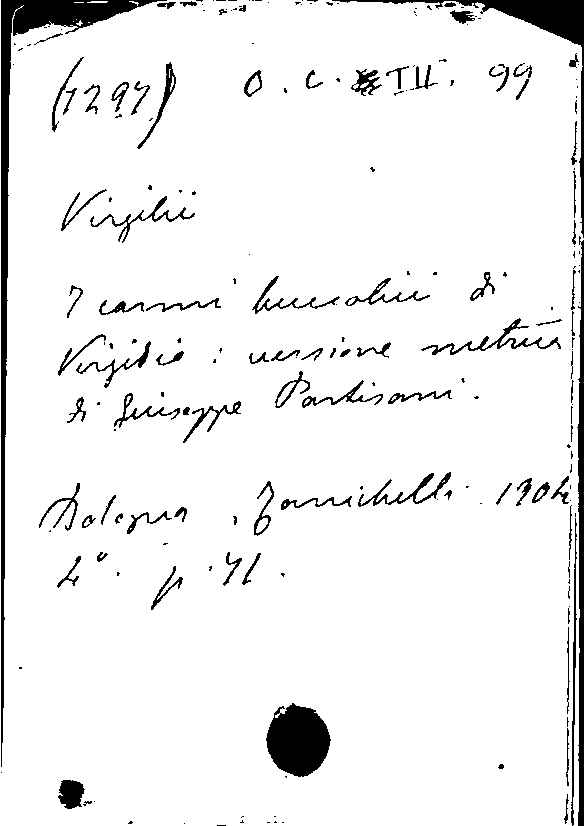 (7297) O. C. III. 99
Virgilii
I carmi buccolici di
Virgilio : versione metrica
di Giuseppe Partisani.
Bologna, Zanichelli 1904
4°. p. 71.